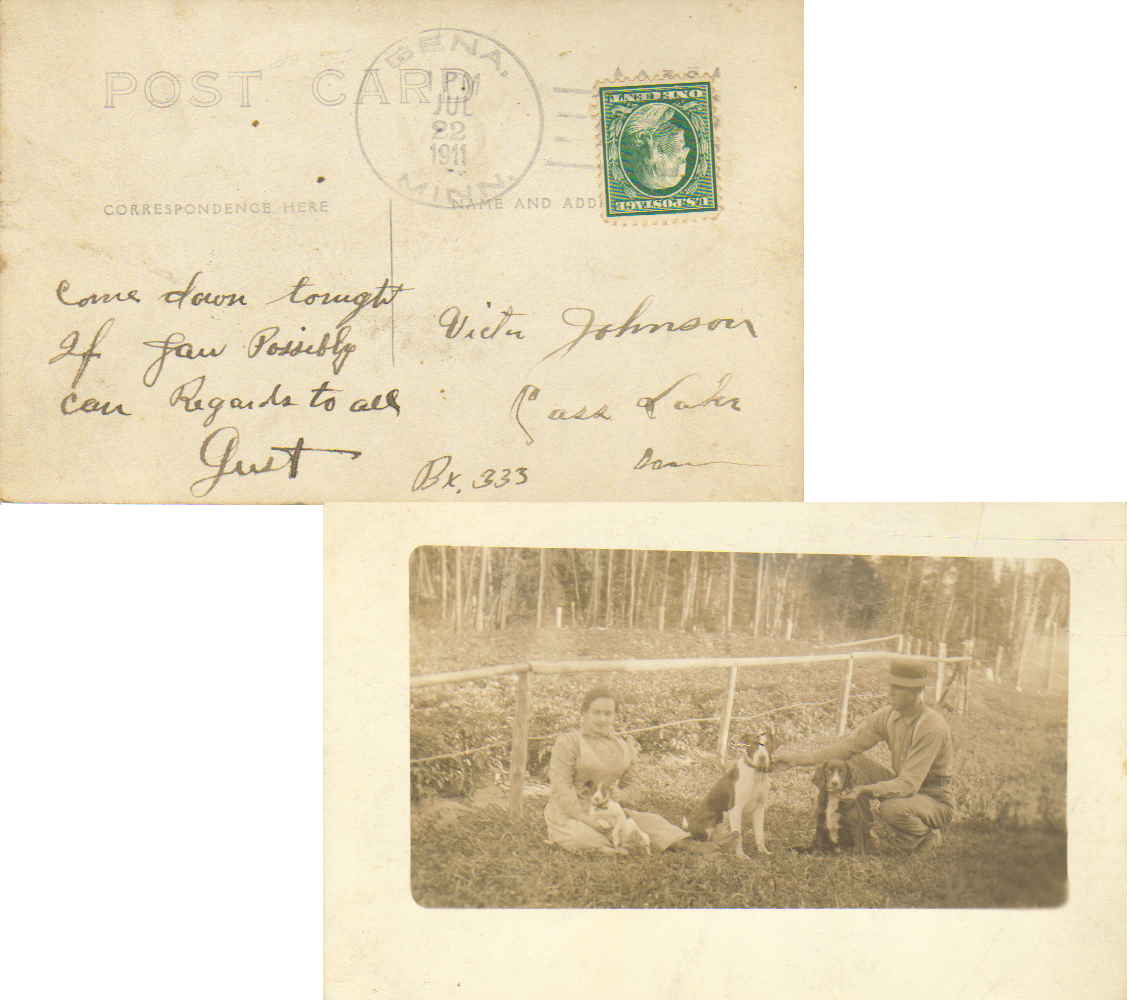 POST CARD
BENA.
1 PM
JUL
22
1911
MINN.
ONE CENT
U.S. POSTAGE
CORRESPONDENCE HERE
NAME AND ADD
Come down tonight
If you Possibly
can Regards to all
Gust
Victor Johnson
Cass Lake
Bx. 333